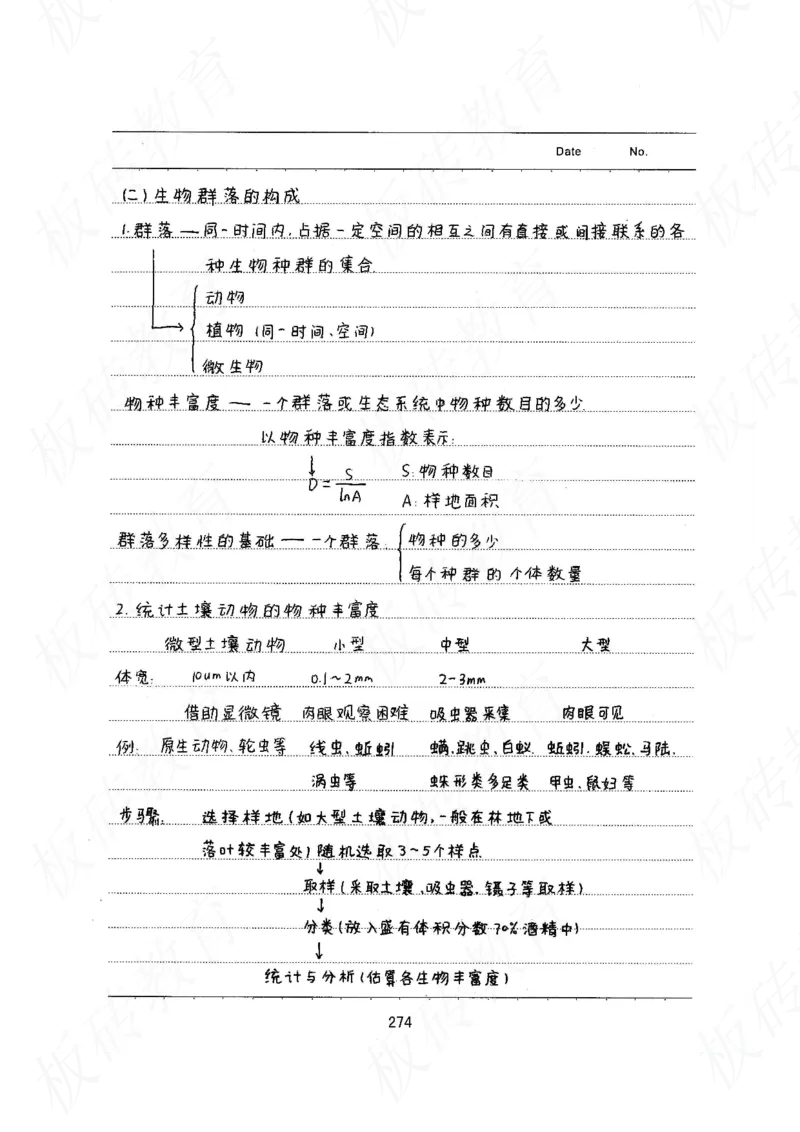 Date No.
(二)生物群落的构成
1.群落——同一时间内,占据一定空间的相互之间有直接或间接联系的各
种生物种群的集合.
动物
植物(同一时间、空间)
微生物
物种丰富度——一个群落或生态系统中物种数目的多少.
以物种丰富度指数表示:
D=S/lnA S:物种数目
A:样地面积
群落多样性的基础——一个群落 物种的多少
每个种群的个体数量
2.统计土壤动物的物种丰富度
微型土壤动物 小型 中型 大型
体宽: 10um以内 0.1~2mm 2-3mm
借助显微镜 肉眼观察困难 吸虫器采集 肉眼可见
例: 原生动物、轮虫等 线虫、蚯蚓 螨、跳虫、白蚁. 蚯蚓、蜈蚣、马陆、
涡虫等 蛛形类多足类 甲虫、鼠妇等
步骤: 选择样地(如大型土壤动物,一般在林地下或
落叶较丰富处)随机选取3~5个样点
↓
取样(采取土壤、吸虫器、镊子等取样)
↓
分类(放入盛有体积分数70%酒精中)
↓
统计与分析(估算各生物丰富度)
274
板砖教育